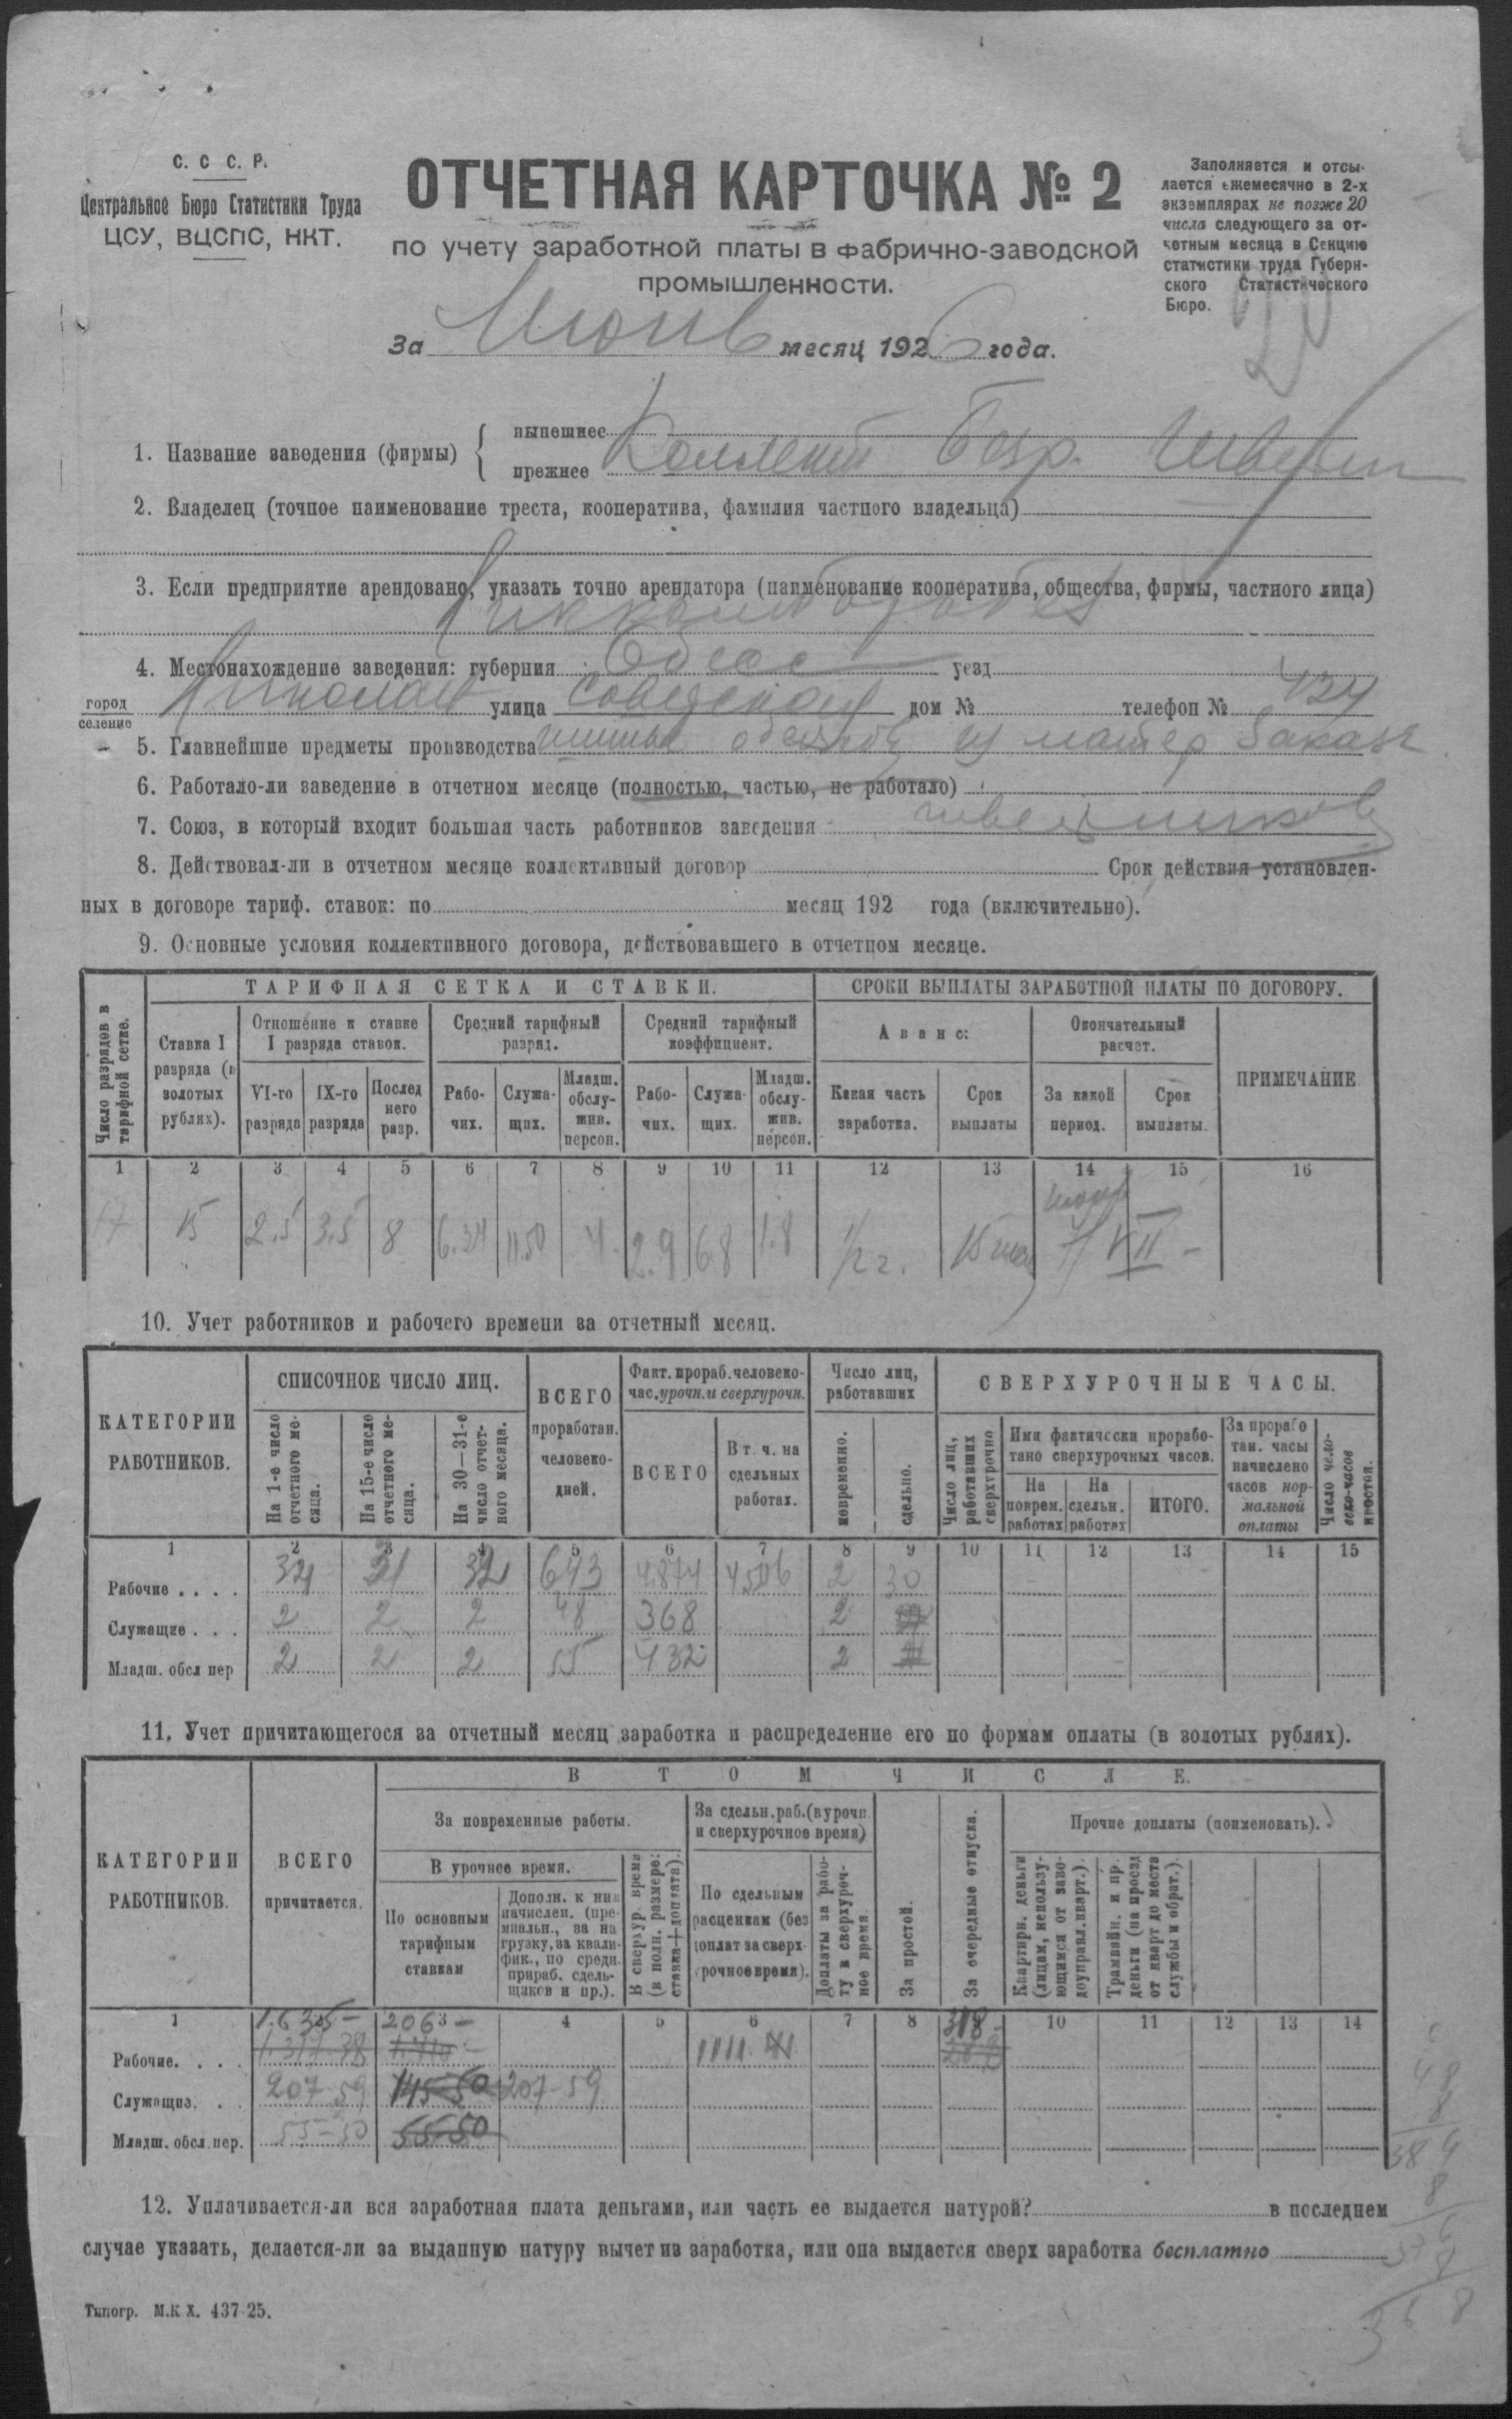 С. С С. Р.
Центральное Бюро Статистики Труда
ЦСУ, ВЦСПС, НКТ.
ОТЧЕТНАЯ КАРТОЧКА № 2
по учету заработной платы в фабрично-заводской
промышленности.
За Июнь месяц 1926 года.
Заполняется и отсы-
лается ежемесячно в 2-х
экземплярах не позже 20
числа следующего за от-
четным месяца в Секцию
статистики труда Губерн-
ского Статистического
Бюро.
1. Название заведения (фирмы)
нынешнее
прежнее
Коллектив Безр. Швейн
2. Владелец (точное наименование треста, кооператива, фамилия частного владельца)
3. Если предприятие арендовано, указать точно арендатора (наименование кооператива, общества, фирмы, частного лица)
4. Местонахождение заведения: губерния Одесс уезд
город
селение
Николаев улица Советская дом № телефон № 424
5. Главнейшие предметы производства из матер заказч
6. Работало-ли заведение в отчетном месяце (полностью, частью, не работало)
7. Союз, в который входит большая часть работников заведения швейников
8. Действовал-ли в отчетном месяце коллективный договор Срок действия установлен-
ных в договоре тариф. ставок: по месяц 192 года (включительно).
9. Основные условия коллективного договора, действовавшего в отчетном месяце.
Число разрядов в тарифной сетке.
ТАРИФНАЯ СЕТКА И СТАВКИ.
СРОКИ ВЫПЛАТЫ ЗАРАБОТНОЙ ПЛАТЫ ПО ДОГОВОРУ.
Ставка I разряда (в золотых рублях).
Отношение к ставке I разряда ставок.
Средний тарифный разряд.
Средний тарифный коэффициент.
Аванс:
Окончательный расчет.
ПРИМЕЧАНИЕ
VI-го разряда
IX-го разряда
Послед него разр.
Рабо- чих.
Служа- щих.
Младш. обслу- жив. персон.
Рабо- чих.
Служа- щих.
Младш. обслу- жив. персон.
Какая часть заработка.
Срок выплаты
За какой период.
Срок выплаты.
1 2 3 4 5 6 7 8 9 10 11 12 13 14 15 16
17 15 2.5 3.5 8 6.34 11.50 4. 2.9 6.8 1.8 1/2 г. 15 июн 7/VII -
10. Учет работников и рабочего времени за отчетный месяц.
КАТЕГОРИИ РАБОТНИКОВ.
СПИСОЧНОЕ ЧИСЛО ЛИЦ.
На 1-е число отчетного ме- сяца.
На 15-е число отчетного ме- сяца.
На 30—31-е число отчет- ного месяца.
ВСЕГО проработан. человеко- дней.
Факт. прораб. человеко- час. урочн. и сверхурочн.
ВСЕГО
В т. ч. на сдельных работах.
Число лиц, работавших
повременно.
сдельно.
СВЕРХУРОЧНЫЕ ЧАСЫ.
Число лиц, работавших сверхурочно
Ими фактически прорабо- тано сверхурочных часов.
На поврем. работах
На сдельн. работах
ИТОГО.
За прорабо тан. часы начислено часов нор- мальной оплаты
Число чело- веко-часов простоя.
1 2 3 4 5 6 7 8 9 10 11 12 13 14 15
Рабочие . . . . 32 31 32 643 4874 4506 2 30
Служащие . . . 2 2 2 48 368 2
Младш. обсл пер 2 2 2 55 432 2
11. Учет причитающегося за отчетный месяц заработка и распределение его по формам оплаты (в золотых рублях).
КАТЕГОРИИ РАБОТНИКОВ.
ВСЕГО причитается.
В ТОМ ЧИСЛЕ.
За повременные работы.
В урочное время.
По основным тарифным ставкам
Дополн. к ним начислен. (пре- миальн., за на грузку, за квали- фик., по средн. прираб. сдель- щиков и пр.).
В сверхур. время (в полн. размере: ставка+доплата).
За сдельн. раб. (в урочн. и сверхурочное время)
По сдельным расценкам (без доплат за сверх- урочное время).
Доплаты за рабо- ту в сверхуроч- ное время.
За простой.
За очередные отпуска.
Прочие доплаты (поименовать).
Квартирн. деньги (лицам, непользу- ющимся от заво- доуправл. кварт.).
Трамвайн. и пр. деньги (на проезд от кварт до места службы и обрат.).
1 4 5 6 7 8 10 11 12 13 14
1.635 - 206 - 318 -
Рабочие. . . . 1.317-38 1111.
Служащие. . . 207-59 145-50 207-59
Младш. обсл. пер. 55-50 55-50
12. Уплачивается-ли вся заработная плата деньгами, или часть ее выдается натурой? в последнем
случае указать, делается-ли за выданную натуру вычет из заработка, или она выдается сверх заработка бесплатно
48
8
384
8
376
8
368
Типогр. М.К Х. 437 25.